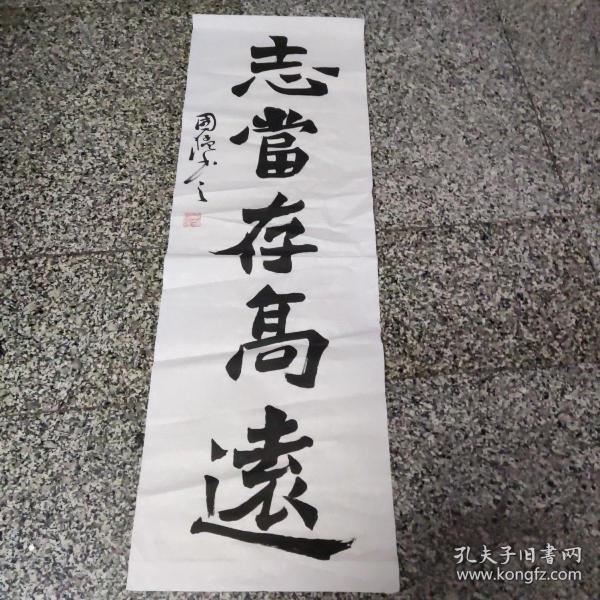 志當存高遠
孔夫子旧書网
www.kongfz.com